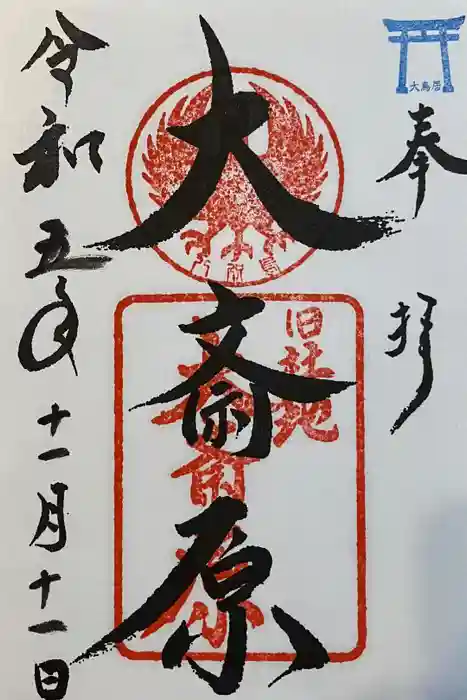 奉拝
大鳥居
大斎原
旧社地
大斎原
令和五年十一月十一日